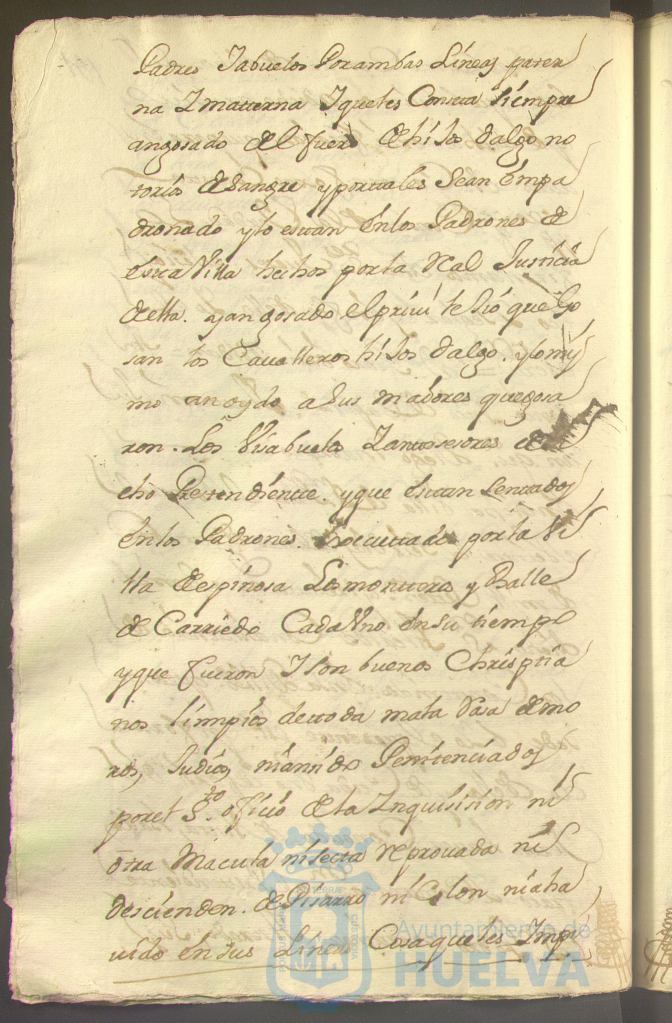 Padres Iabuelos Porambas Lineas pater
na Imatterna Iqueles Consta siempre
angosado del fuero de hisos dalgo no
torios de sangre yportales Sean Empa
dronado ylo estan Enlos Padrones de
Esta Villa hechos porla Real Justicia
della. yan gosado el privi le Sio que Go
san los Cavalleros hisos dalgo. ylomis
mo an oydo a sus maiores quegosa
ron. Los Visabuelos Iantesesores de
cho Pretendiente. yque Estan Sentados
Enlos Padrones. Executtados porla Vi
lla de espinosa Losmontteros y Balle
de Carriedo Cada Uno En su tiempo
yque fueron Ison buenos Chrisptia
nos limpios de toda mala Rasa de mo
ros, Judios, niansido Penitenciados
porel S.to oficio dela Inquisision ni
otra Macula nisecta Reprovada ni
descienden. de Pisarro ni Colon niaha
vido en sus Lineas Cosa queles Impi
Ayuntamiento de
HUELVA